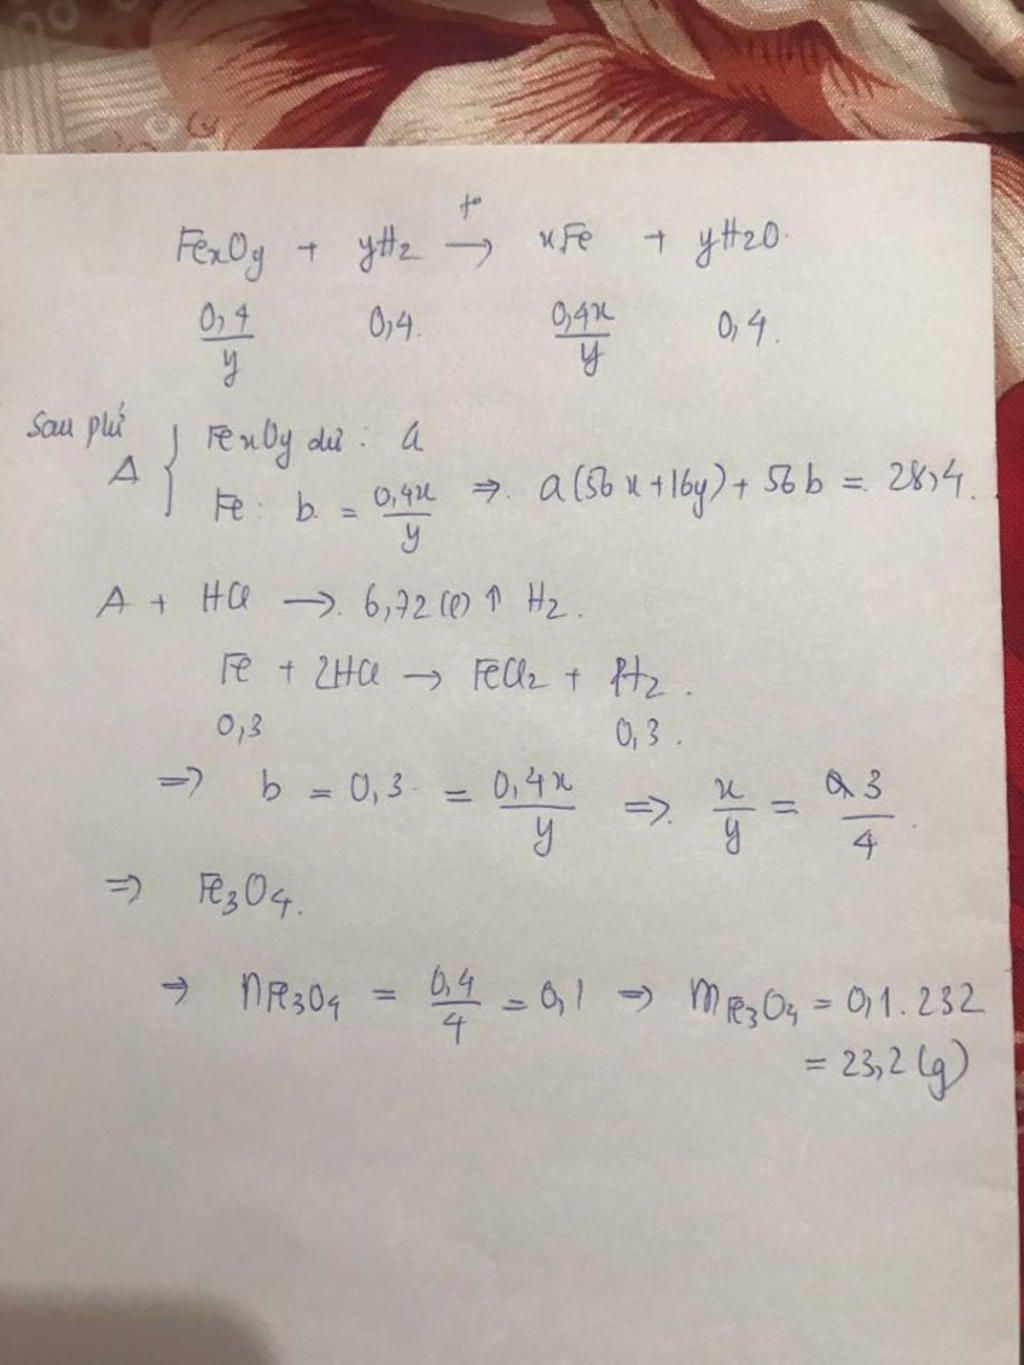 FexOy + yH2 →t° xFe + yH2O.
0,4/y 0,4. 0,4x/y 0,4.
Sau pứ
A { FexOy dư : a
Fe : b = 0,4x/y ⇒ a(56x+16y) + 56b = 28,4.
A + HCl → 6,72(l) ↑ H2.
Fe + 2HCl → FeCl2 + H2.
0,3 0,3.
⇒ b = 0,3 = 0,4x/y ⇒ x/y = 3/4.
⇒ Fe3O4.
⇒ nFe3O4 = 0,4/4 = 0,1 ⇒ mFe3O4 = 0,1.232
= 23,2 (g)